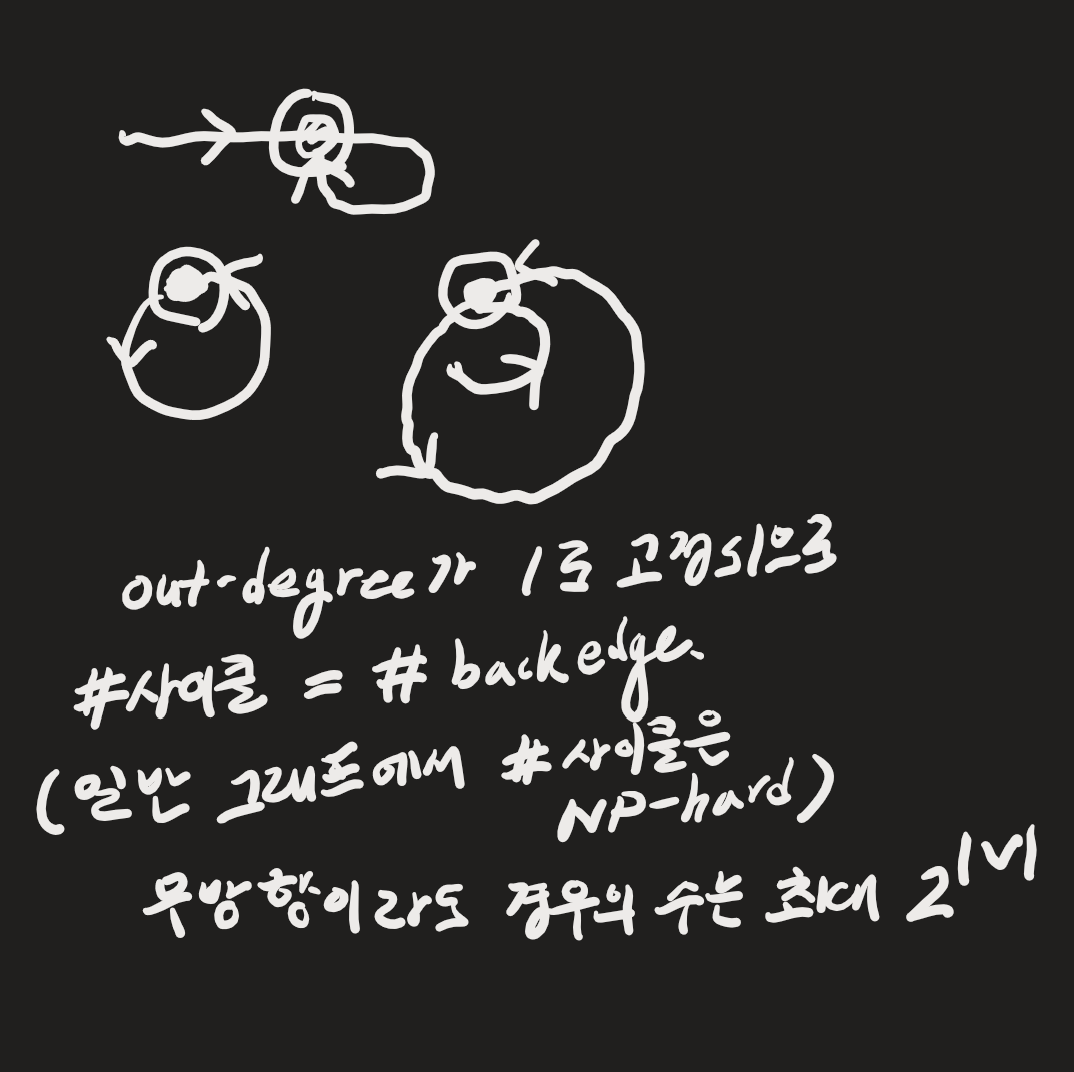 out-degree가 1로 고정되므로
#사이클 = # back edge
(일반 그래프에서 #사이클은
NP-hard)
무방향이라도 경우의 수는 최대 2^|V|